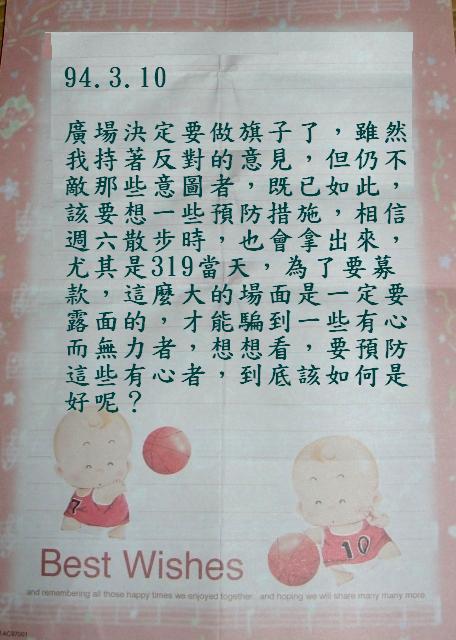 94.3.10
廣場決定要做旗子了，雖然
我持著反對的意見，但仍不
敵那些意圖者，既已如此，
該要想一些預防措施，相信
週六散步時，也會拿出來，
尤其是319當天，為了要募
款，這麼大的場面是一定要
露面的，才能騙到一些有心
而無力者，想想看，要預防
這些有心者，到底該如何是
好呢？
7
10
Best Wishes
and remembering all those happy times we enjoyed together and hoping we will share many many more